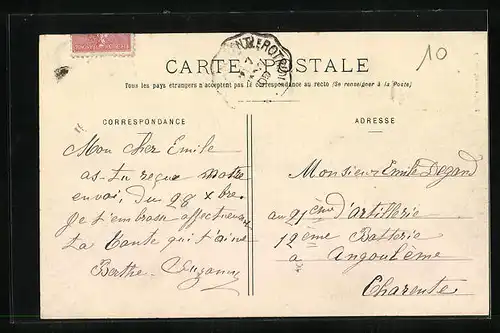 10
CARTE POSTALE
Tous les pays étrangers n'acceptent pas la correspondance au recto (Se renseigner à la Poste)
CORRESPONDANCE
Mon Cher Emile
as-tu reçu notre
envoi, du 28 xbre.
Je t'embrasse affectueusement
Ta Tante qui t'aime
Berthe Suzanne
ADRESSE
Monsieur Emile Degand
au 21ème d'artillerie
12ème Batterie
à Angoulême
Charente